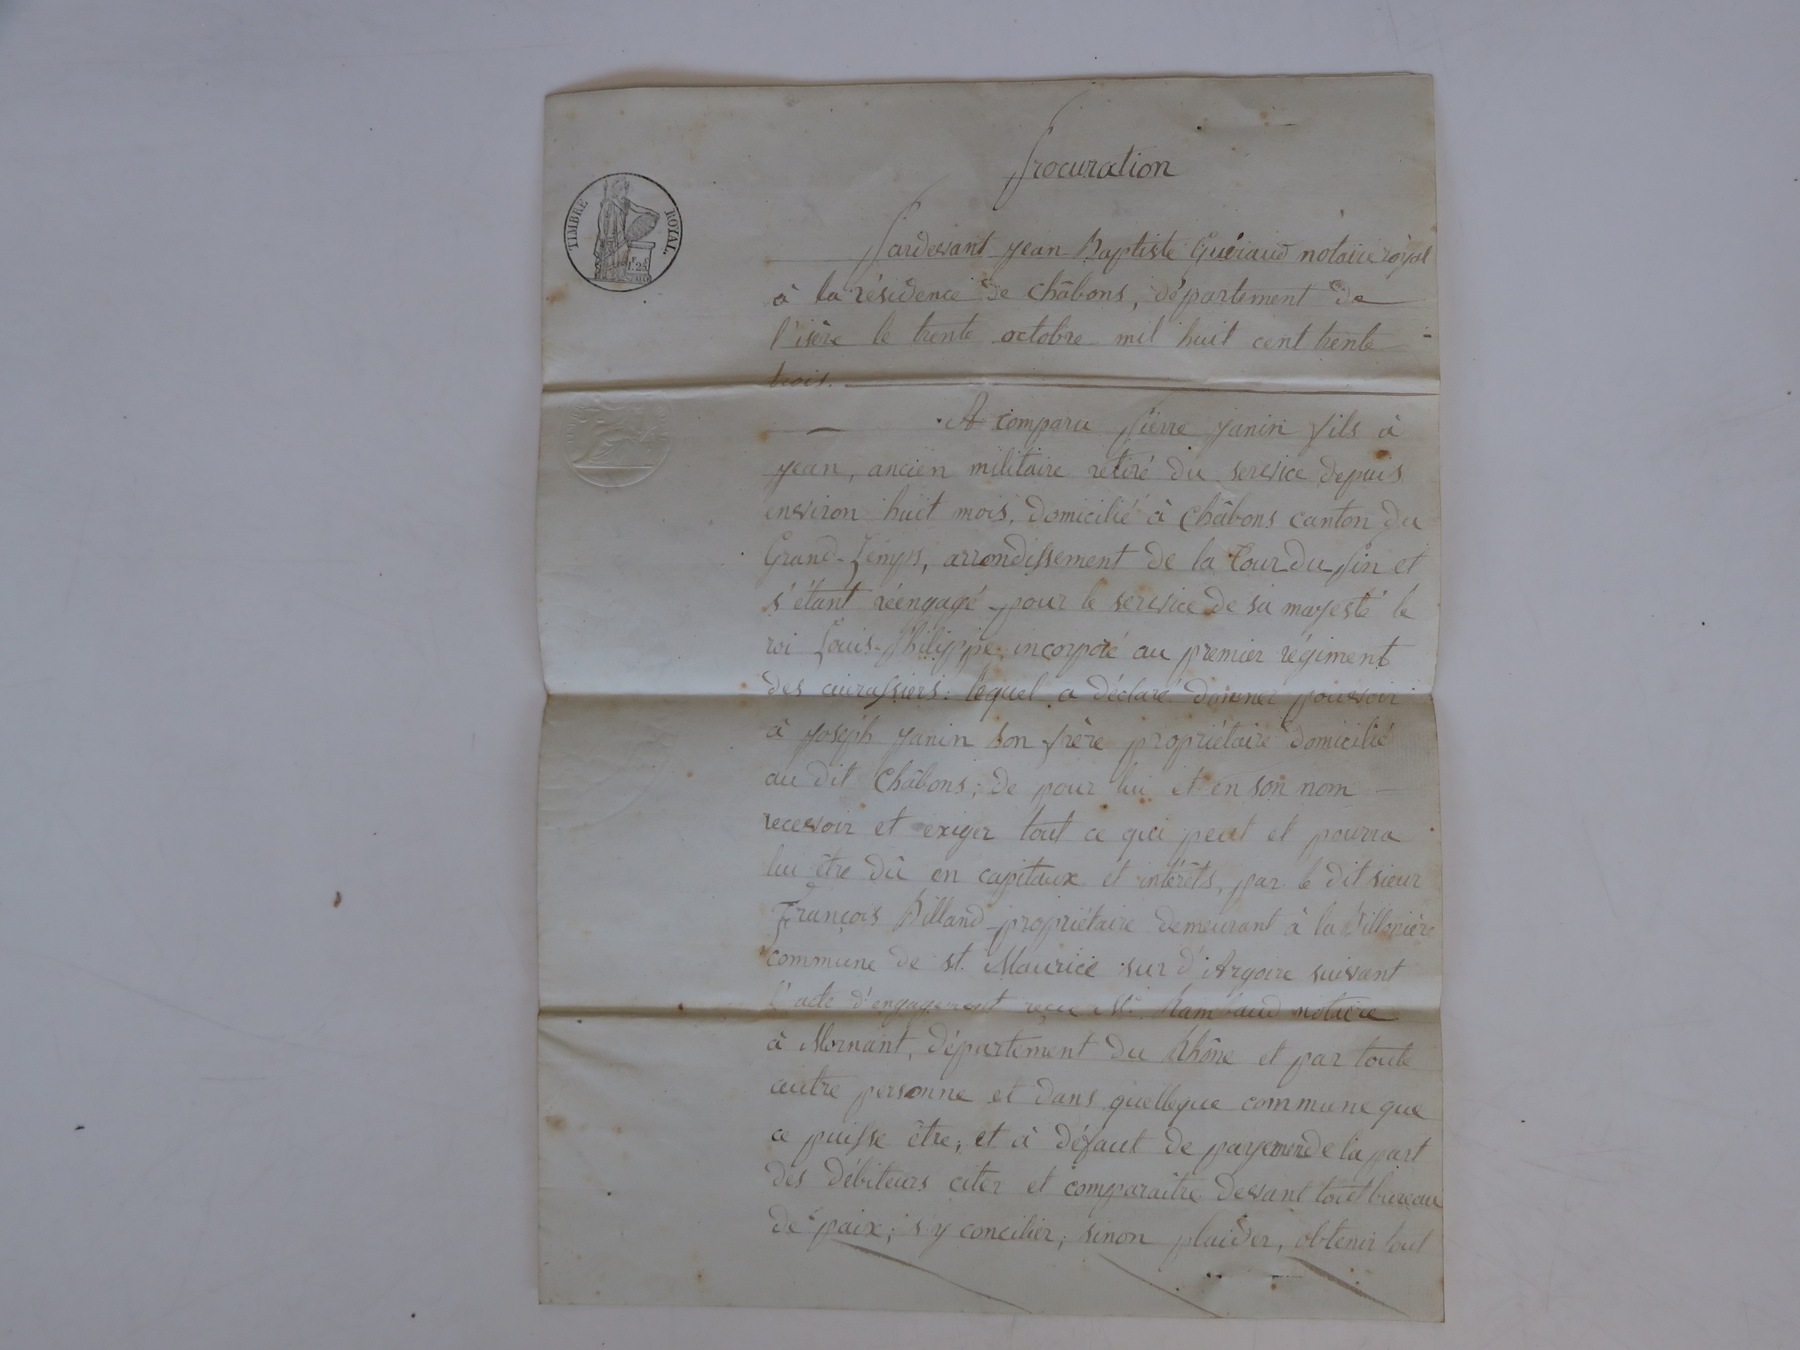 TIMBRE ROYAL
1 f. 25
Procuration
Pardevant jean Baptiste Guéraud notaire royal
à la résidence de Châbons, département de
l'isère le trente octobre mil huit cent trente
trois.
A comparu Pierre janin fils à
jean, ancien militaire retiré du service depuis
environ huit mois, domicilié à Châbons canton du
Grand-Lemps, arrondissement de la tour du pin et
s'étant réengagé pour le service de sa majesté le
roi Louis-Philippe, incorporé au premier régiment
des cuirassiers: lequel a déclaré donner pouvoir
à joseph janin son frère propriétaire domicilié
au dit Châbons; de pour lui et en son nom
recevoir et exiger tout ce qui peut et pourra
lui être dû en capitaux et intérêts, par le dit sieur
François Billand propriétaire demeurant à la
commune de st. Maurice sur d'Argoire suivant
l'acte d'engagement reçu Me. Rambaud notaire
à Mornant, département du Rhône et par toute
autre personne et dans quelleque commune que
ce puisse être; et à défaut de payement de la part
des débiteurs citer et comparaitre devant tout bureau
de paix; s'y concilier; sinon plaider, obtenir tout